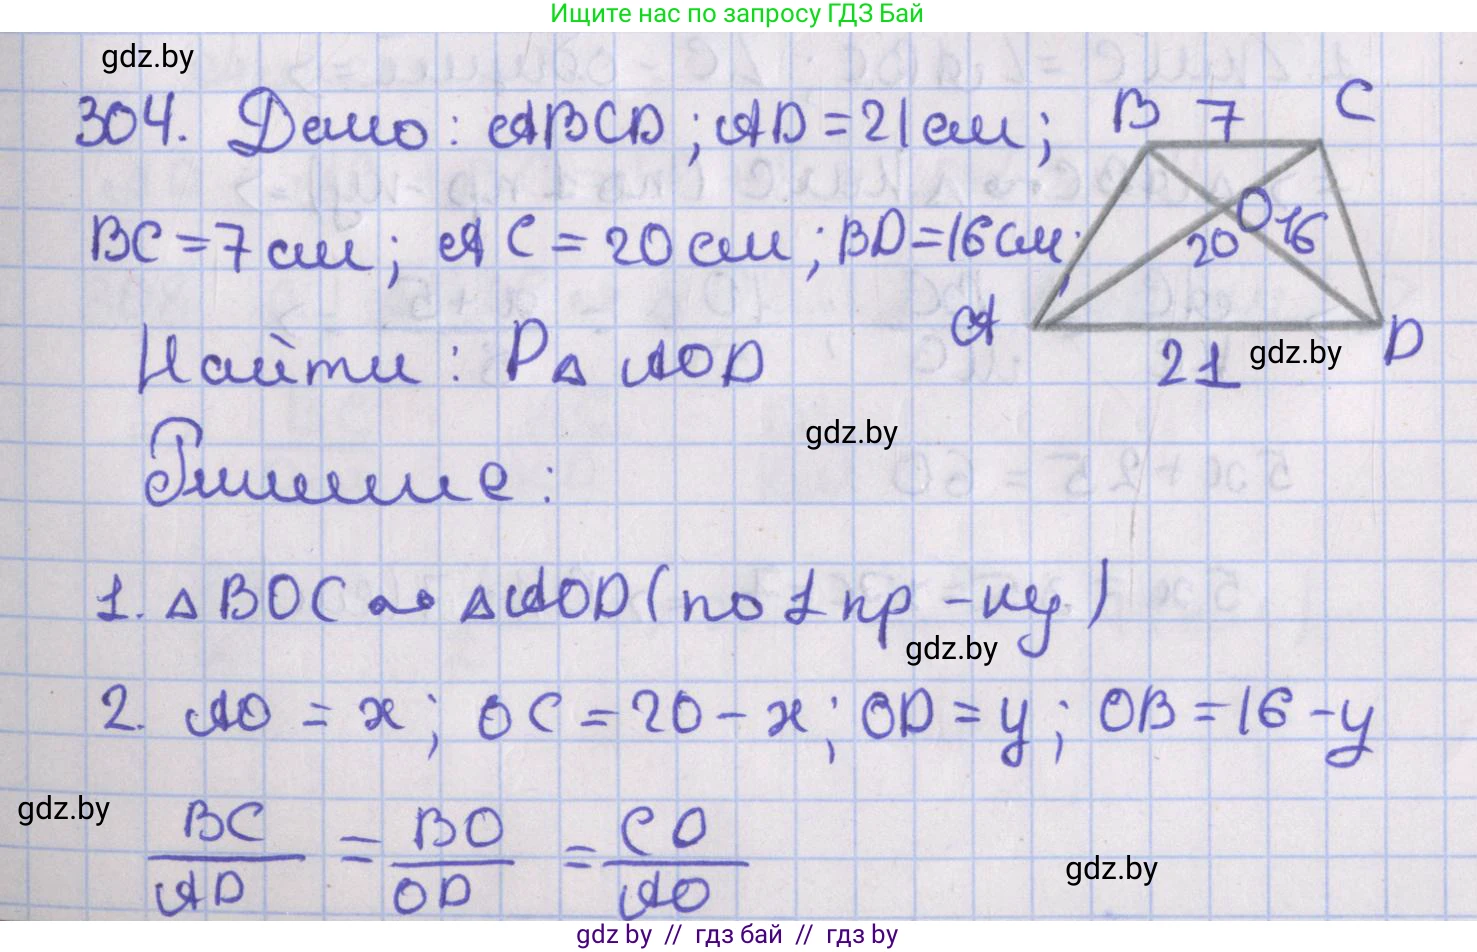 Ищите нас по запросу ГДЗ Бай
gdz.by
304. Дано: ABCD; AD = 21 см;
B 7 C
BC = 7 см; AC = 20 см; BD = 16 см;
O
20 16
A
21
D
gdz.by
Найти: P△ AOD
gdz.by
Решение:
1. △ BOC ∾ △ AOD (по 1 пр-ку)
gdz.by
2. AO = x; OC = 20 - x; OD = y; OB = 16 - y
gdz.by
BC/AD = BO/OD = CO/AO
gdz.by
gdz by // гдз бай // гдз by